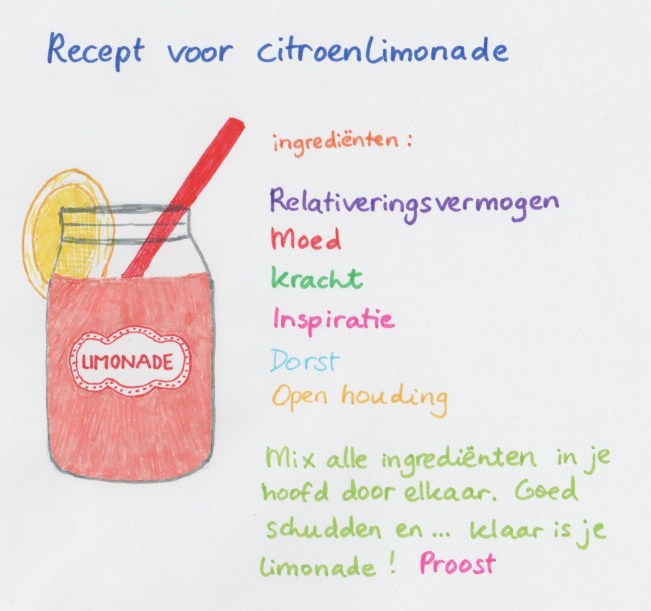 Recept voor citroenlimonade
ingrediënten :
Relativeringsvermogen
Moed
kracht
Inspiratie
Dorst
Open houding
LIMONADE
Mix alle ingrediënten in je
hoofd door elkaar. Goed
schudden en ... klaar is je
limonade ! Proost